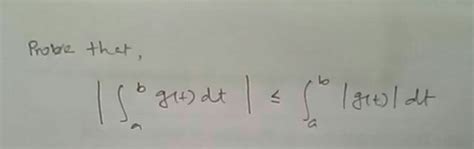 Probe that,
| ∫_a^b g(t) dt | ≤ ∫_a^b |g(t)| dt